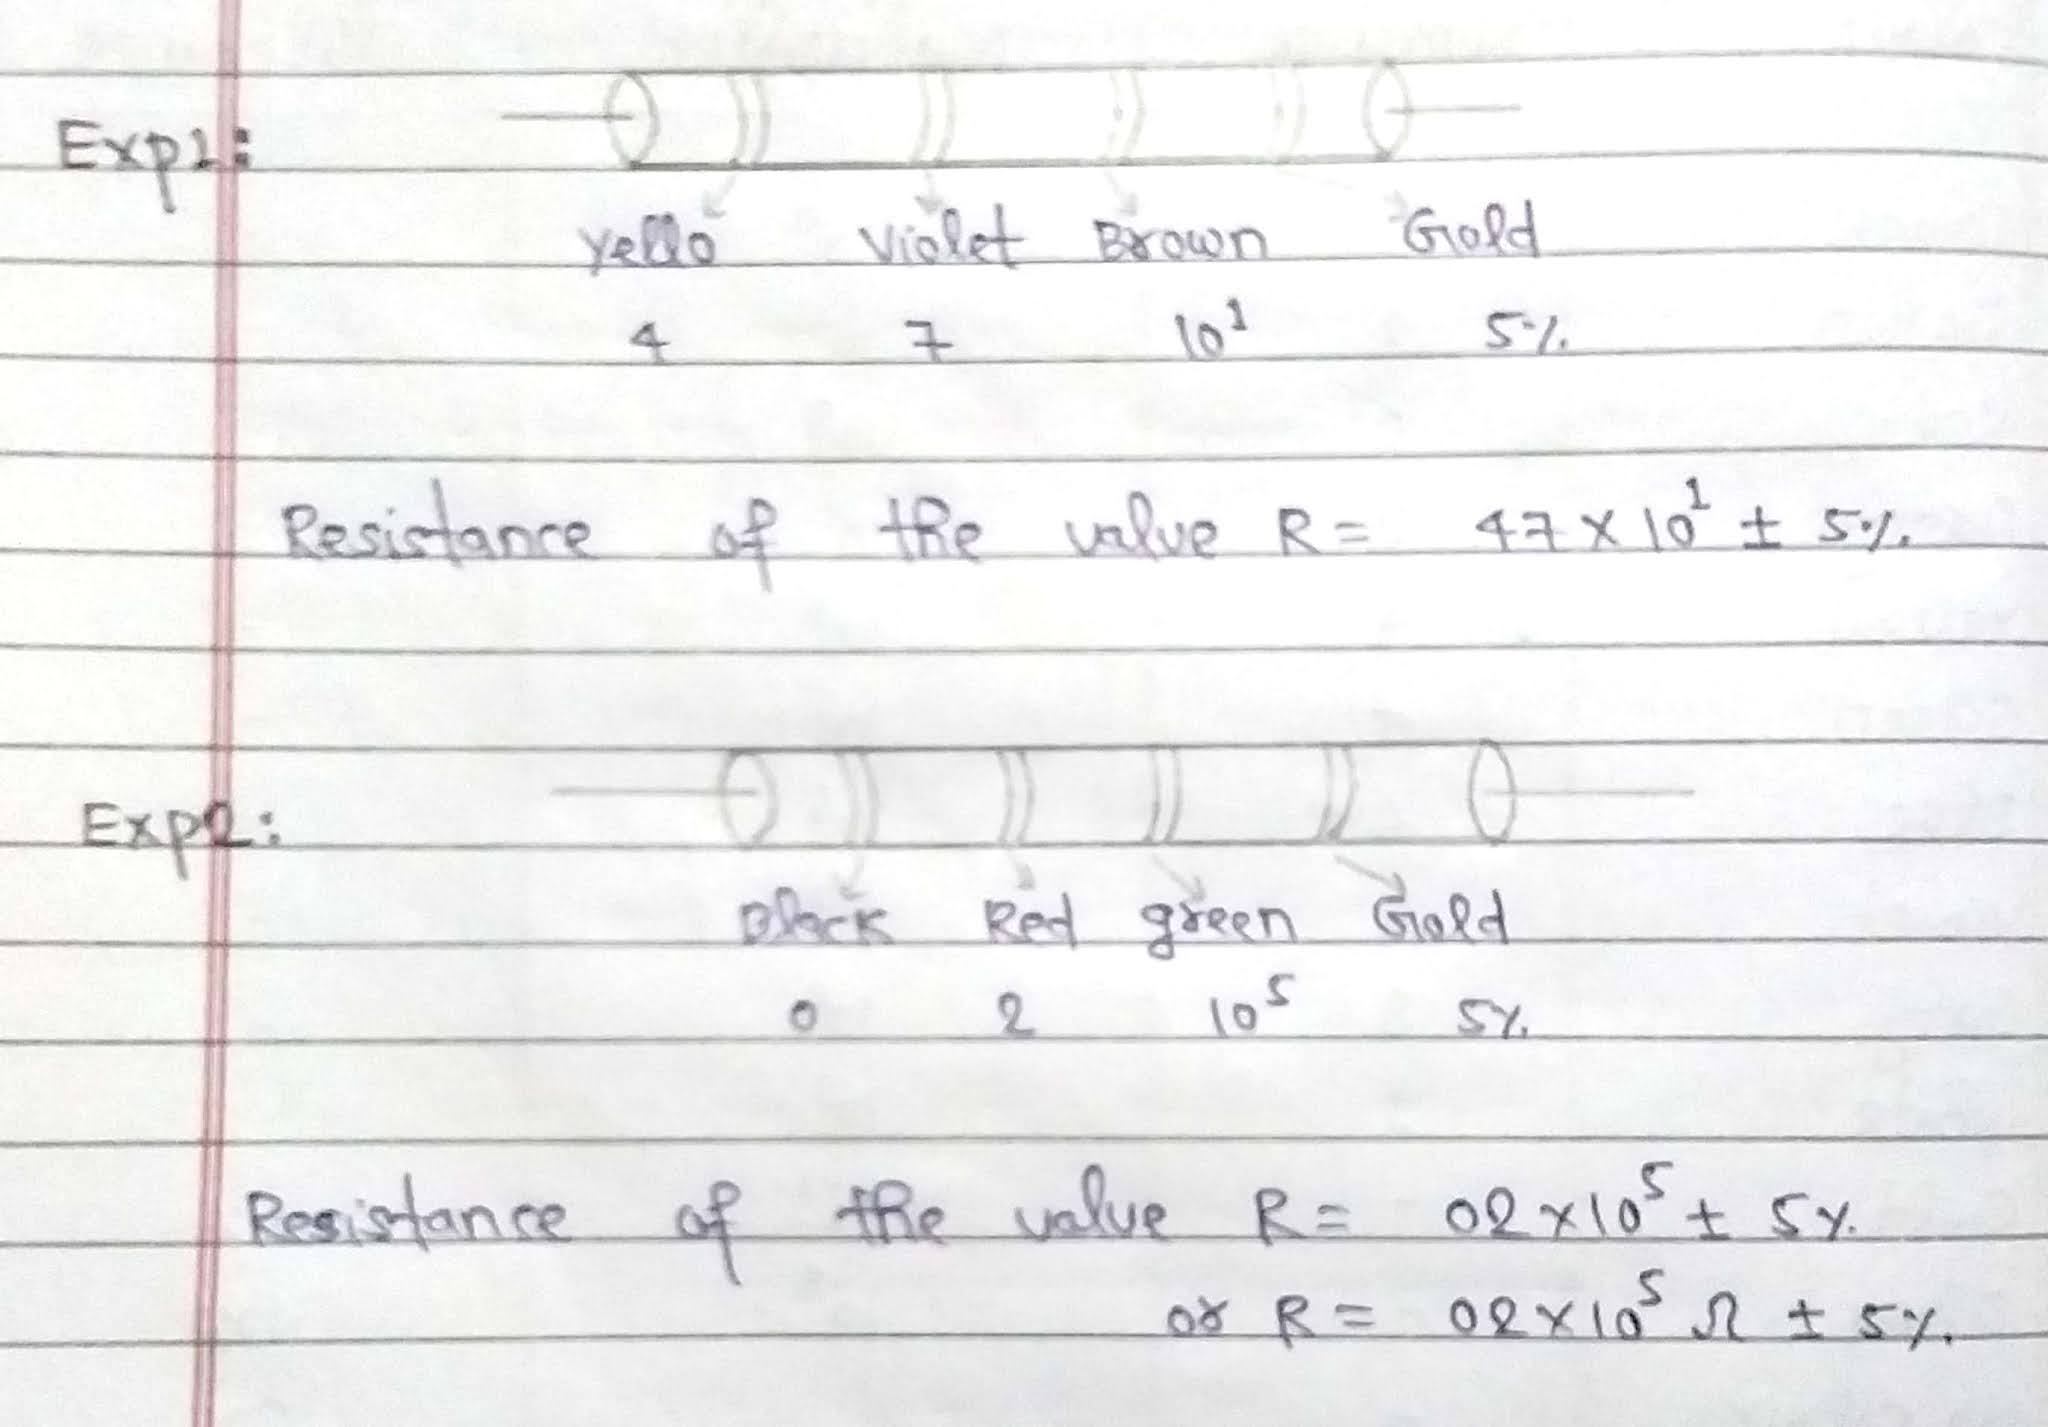 Exp1:
Yello Violet Brown Gold
4 7 10¹ 5%
Resistance of the value R = 47 x 10¹ ± 5%.
Exp2:
Black Red green Gold
0 2 10⁵ 5%
Resistance of the value R = 02 x 10⁵ ± 5%.
or R = 02 x 10⁵ Ω ± 5%.